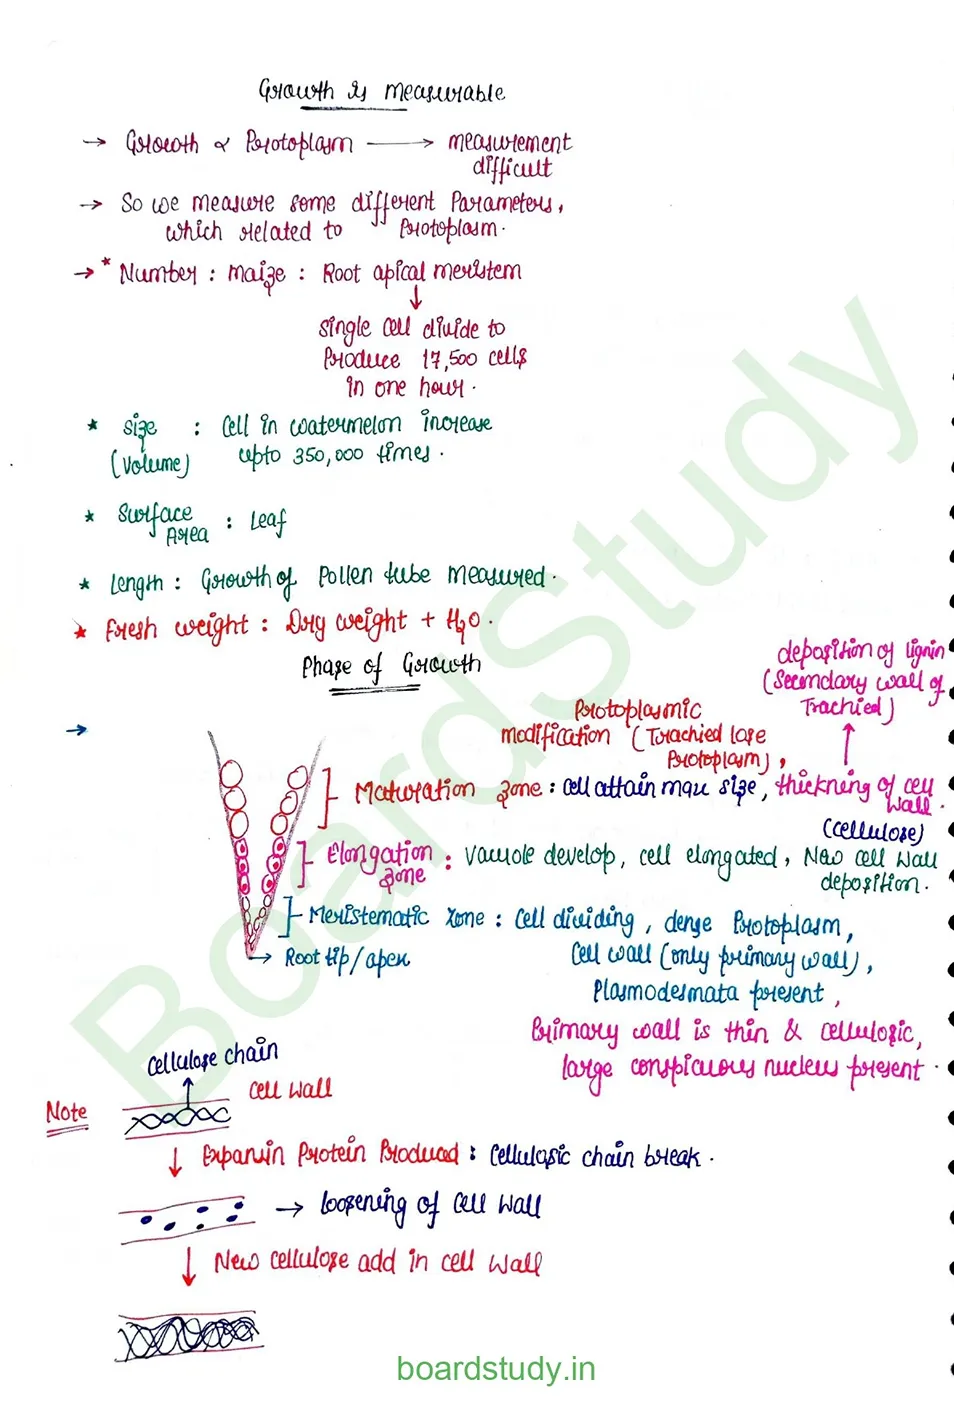 Growth is measurable
→ Growth ∝ Protoplasm ⟶ measurement
difficult
→ So we measure some different Parameters,
which related to Protoplasm.
→ * Number : maize : Root apical meristem
↓
single cell divide to
Produce 17,500 cells
in one hour.
* Size : Cell in watermelon increase
(Volume) upto 350,000 times.
* Surface
Area : Leaf
* Length : Growth of Pollen tube measured.
* Fresh weight : Dry weight + H₂O.
Phase of Growth
deposition of lignin
(Secondary wall of
Trachied)
→
Protoplasmic
modification (Trachied lose
Protoplasm),
Maturation zone : Cell attain max size, thickning of cell
wall.
(cellulose)
Elongation
zone : Vacuole develop, cell elongated, New cell wall
deposition.
Meristematic zone : Cell dividing, dense Protoplasm,
→ Root tip/apex
Cell wall (only primary wall),
Plasmodesmata present,
Primary wall is thin & cellulosic,
large conspicuous nucleus present.
Cellulose chain
Cell wall
Note
↓ Expansin Protein Produced : Cellulosic chain break.
→ loosening of cell wall
↓ New cellulose add in cell wall
BoardStudy
boardstudy.in